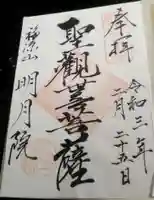 奉拝
令和三年
二月二十五日
聖觀世音菩薩
福源山
明月院